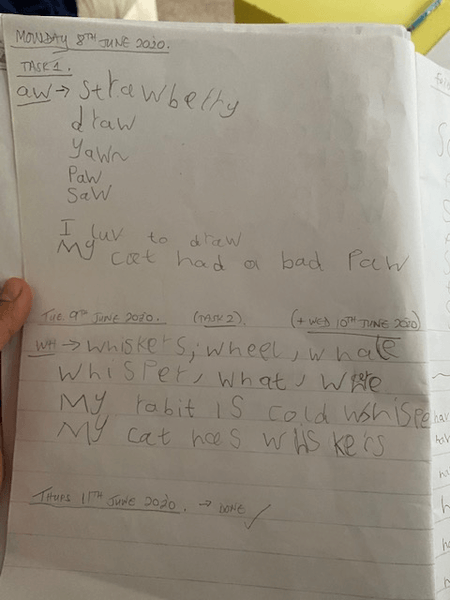 MONDAY 8TH JUNE 2020.
TASK 1.
aw → strawberry
draw
yawn
Paw
Saw
I luv to draw
My cat had a bad Paw
TUE 9TH JUNE 2020. (TASK 2). (+ WED 10TH JUNE 2020)
WH → whiskers, wheel, whale
whisper, what,
My rabit is cold whispe
My cat has whiskers
THURS 11TH JUNE 2020. → DONE ✓